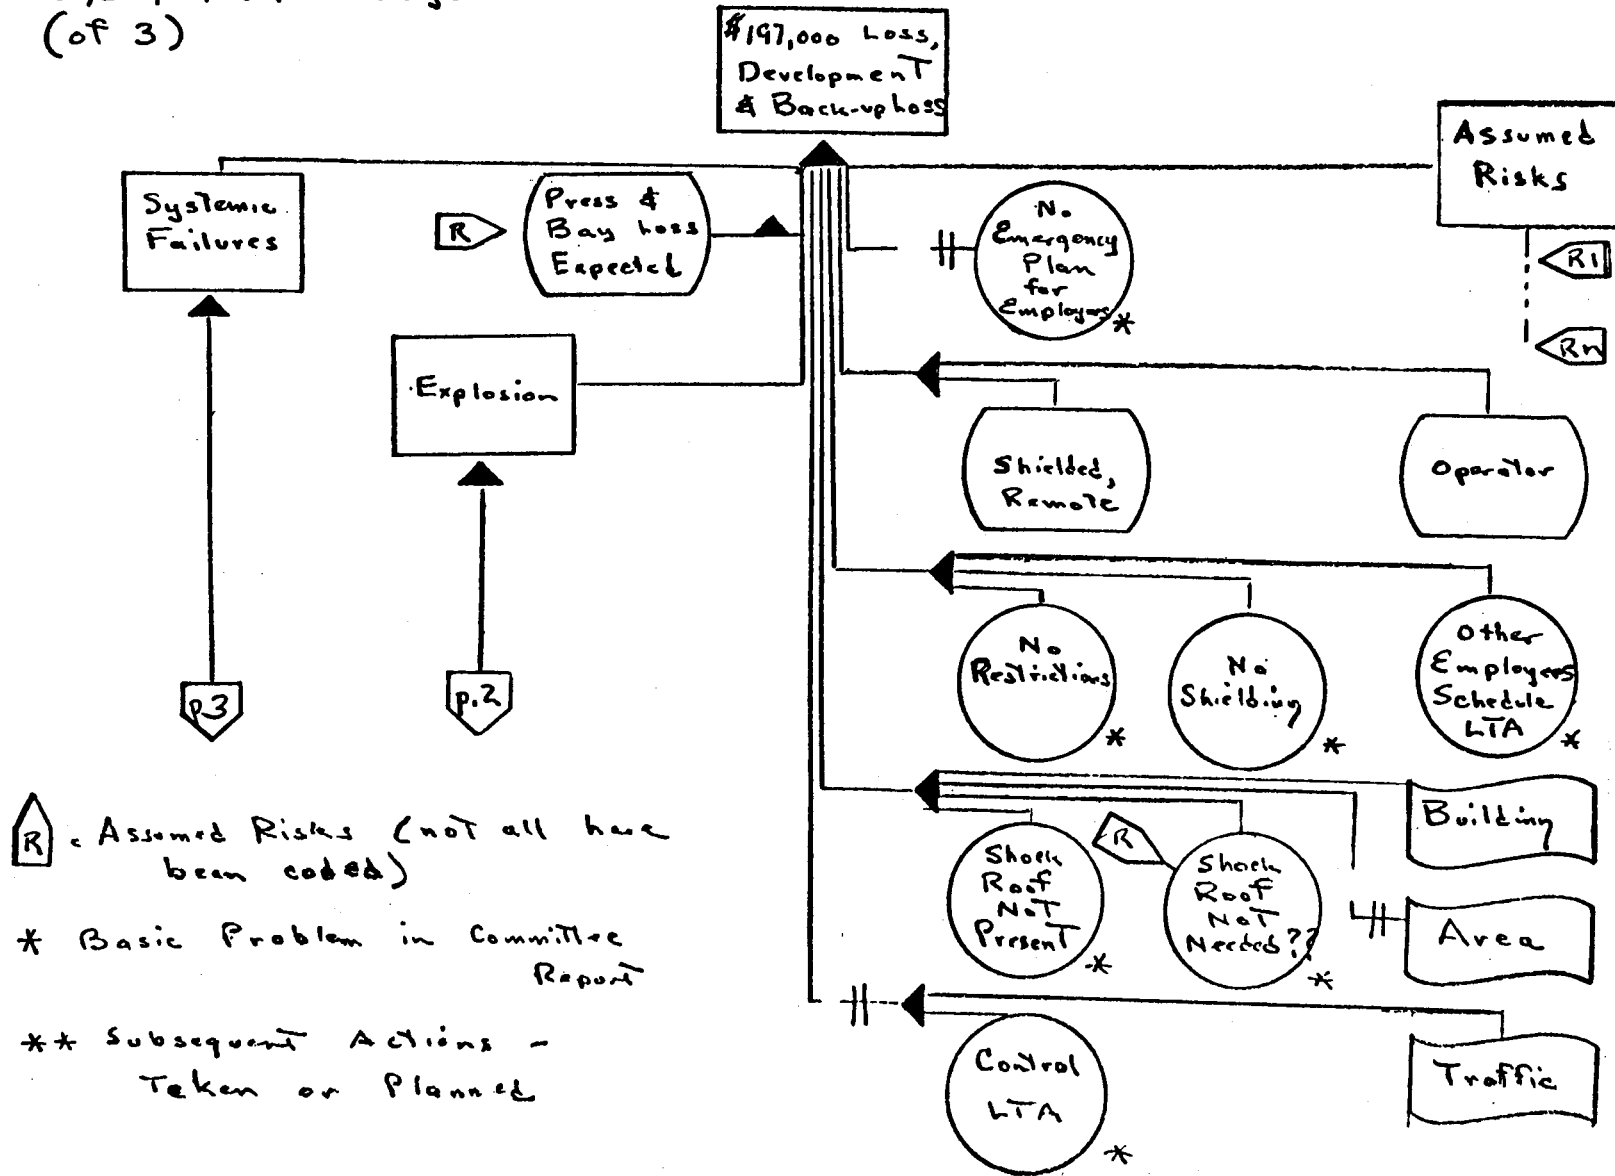 (of 3)
$197,000 Loss,
Development
& Back-up Loss
Assumed
Risks
Systemic
Failures
R
Press &
Bay Loss
Expected
No
Emergency
Plan
for
Employees
*
R1
Rn
Explosion
Shielded,
Remote
Operator
No
Restrictions
*
No
Shielding
*
Other
Employees
Schedule
LTA
*
p.3
p.2
Building
R
Shock
Roof
Not
Present
*
Shock
Roof
Not
Needed??
*
Area
R = Assumed Risks (not all have
been coded)
* Basic Problem in Committee
Report
** Subsequent Actions -
Taken or Planned
Control
LTA
*
Traffic